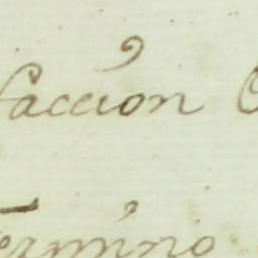 facción
ermino